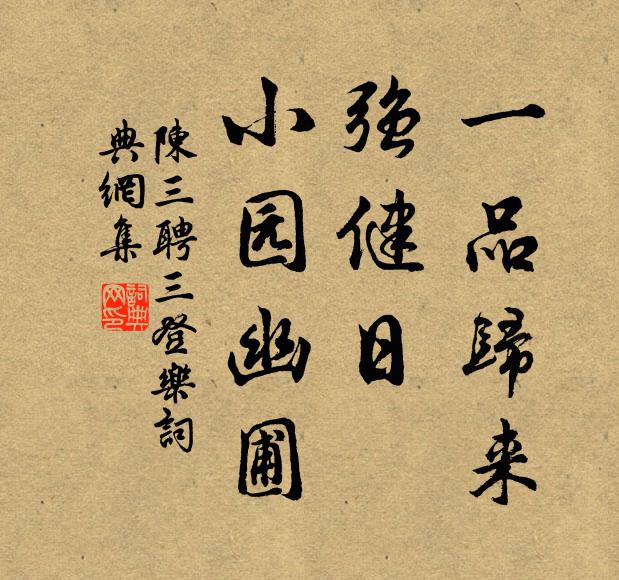 一品歸来
强健日
小园幽圃
陳三聘三登樂詞
典網集
詞典网印